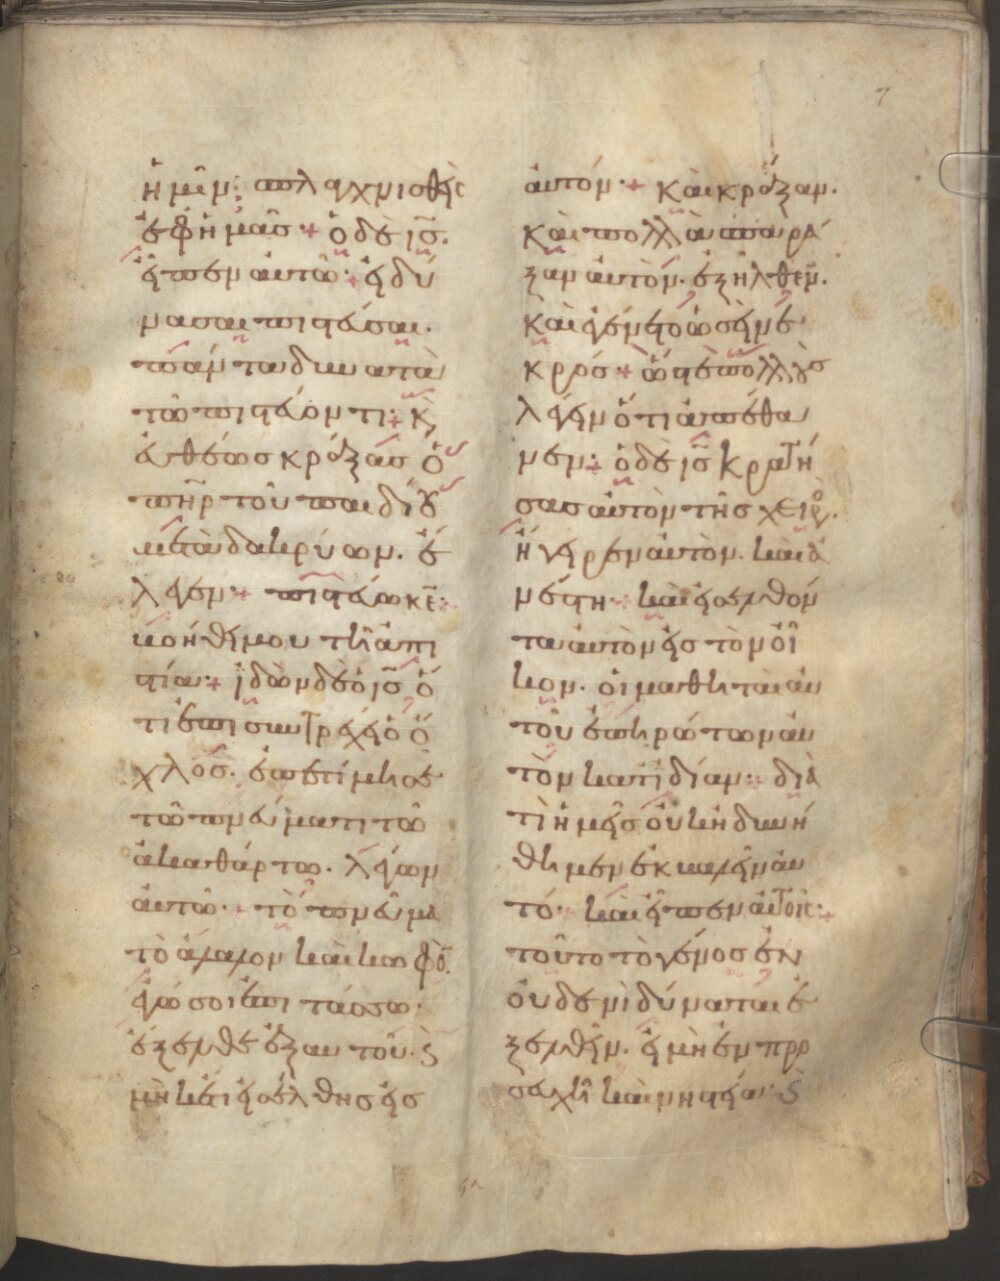 7
ἡμῖν· σπλαγχνισθεὶς
ἐφ ἡμᾶς + ὁ δὲ ις.
εἶπεν αὐτῶ· + εἰ δύ
νασαι πιστεύσαι.
πάντα δυνατὰ
τῶ πιστεύοντι· + κ
εὐθέως κράξας ὁ
πηρ τοῦ παιδίου
μετὰ δακρύων. ἔ
λεγεν· + πιστεύω κε·
βοήθει μου τῆ ἀπι
στία· + ἰδὼν δὲ ὁ ις ὅ
τι ἐπισυντρέχει ὁ ὄ
χλος. ἐπετίμησε
τῶ πνεύματι τῶ
ἀκαθάρτω. λέγων
αὐτῶ· + τὸ πνεῦμα
τὸ ἄλαλον καὶ κωφὸ.
ἐγώ σοι ἐπιτάσσω·
ἔξελθε ἐξ αυτοῦ. ϛ
μὴκέτι εἰσέλθης εἰς
αὐτόν· + καὶ κράξαν.
καὶ πολλὰ σπαρά
ξαν αὐτὸν. ἐξῆλθεν.
καὶ ἐγένετο ὡσεὶ νε
κρός· + ὥστε πολλοὺς
λέγειν ὅτι ἀπέθα
νεν· + ὁ δὲ ις κρατή
σας αὐτὸν τῆς χειρο.
ἤγειρεν αὐτὸν. καὶ ἀ
νέστη· + καὶ εἰσελθόν
τα αὐτὸν εἰς τὸν οἶ
κον. οἱ μαθηταὶ αὐ
τοῦ ἐπηρώτων αὐ
τὸν κατ ἰδίαν· + διὰ
τί ἡμεῖς οὐκ ἠδυνή
θημεν ἐκβαλεῖν αὐ
τό· + καὶ εἶπεν αὐτοῖς· +
τοῦτο τὸ γένος ἐν
οὐδενὶ δύναται ἐ
ξελθεῖν. εἰ μὴ ἐν προ
σευχῆ καὶ νηστεία· ϛ